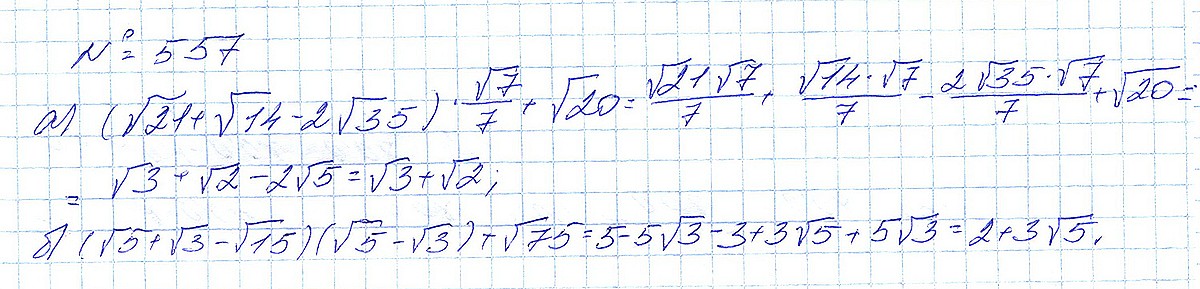 № 557
а) (√21 + √14 - 2√35) · √7/7 + √20 = √21 √7/7 + √14 · √7/7 - 2√35 · √7/7 + √20 =
= √3 + √2 - 2√5 = √3 + √2;
б) (√5 + √3 - √15)(√5 - √3) + √75 = 5 - 5√3 - 3 + 3√5 + 5√3 = 2 + 3√5.